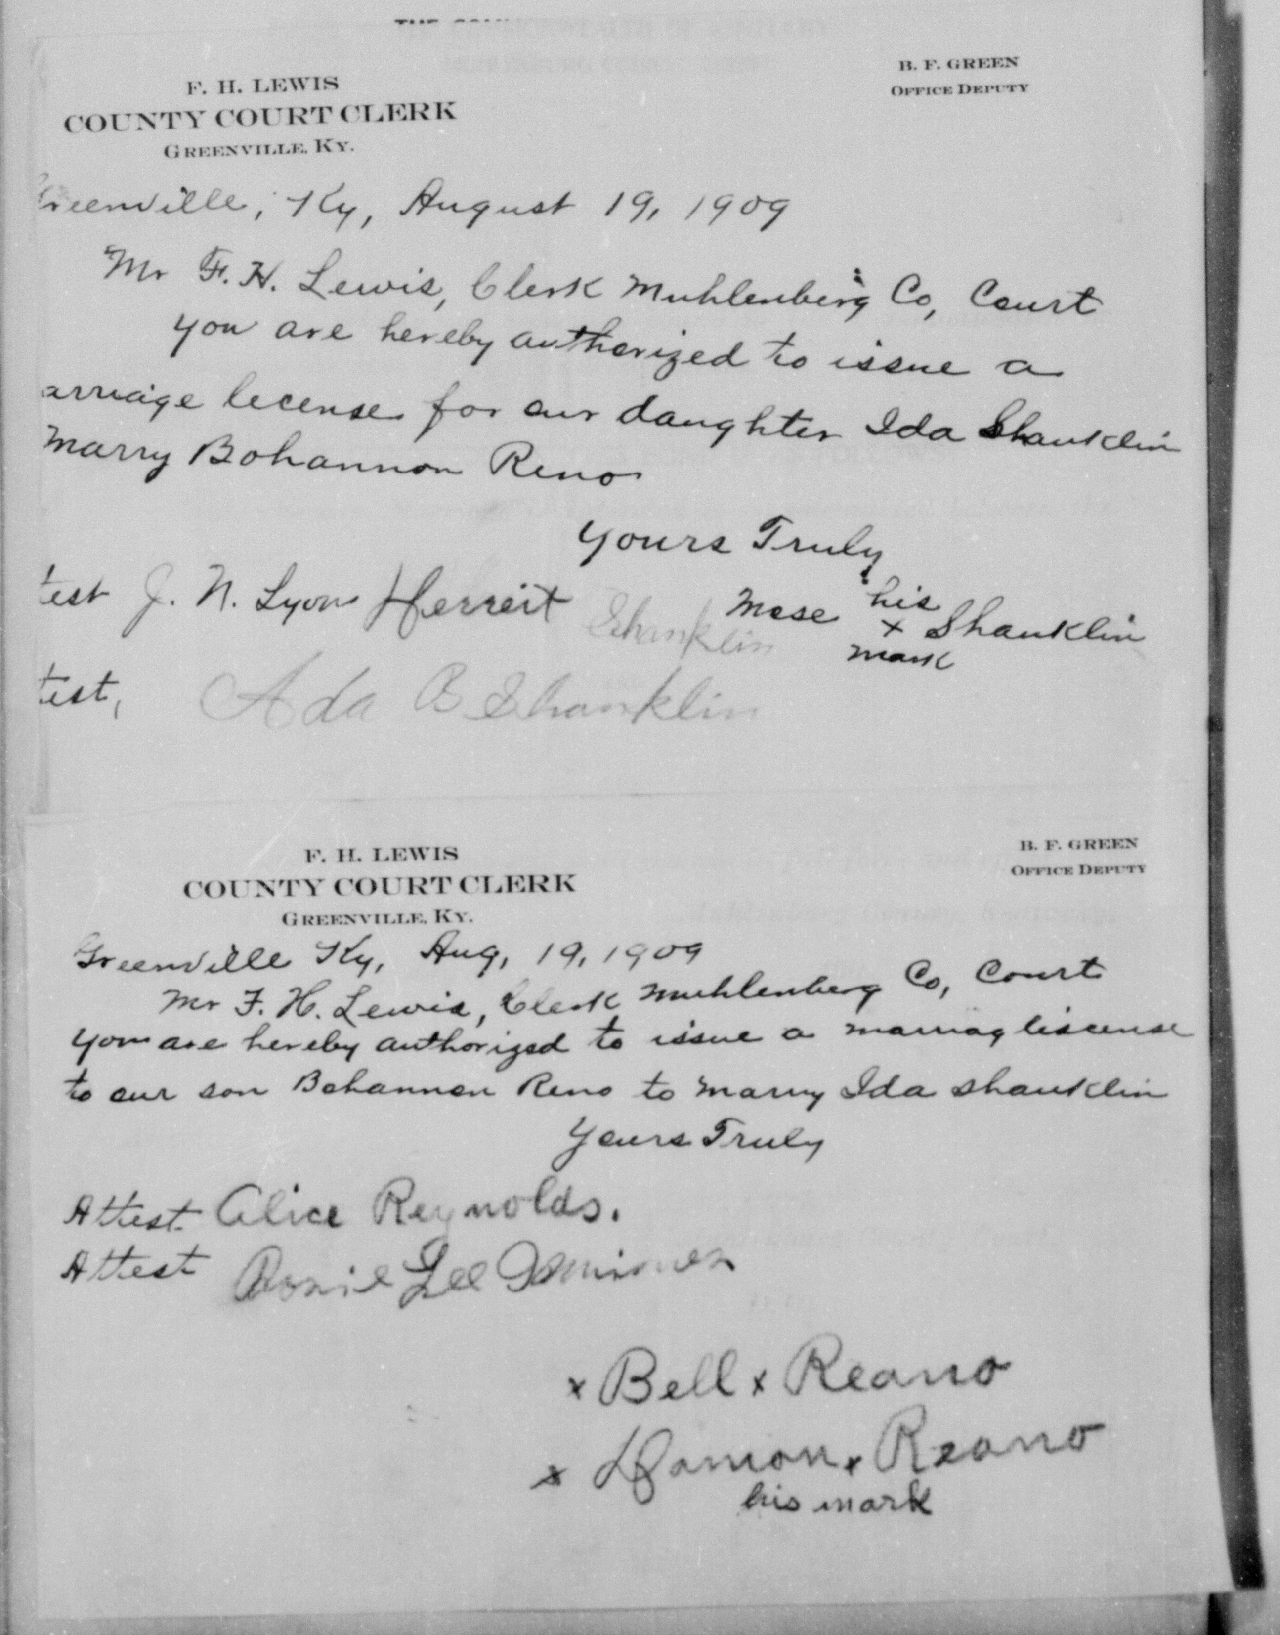 F. H. LEWIS
COUNTY COURT CLERK
GREENVILLE, KY.
B. F. GREEN
OFFICE DEPUTY
Greenville, Ky, August 19, 1909
Mr F. H. Lewis, Clerk Muhlenberg Co, Court
you are hereby authorized to issue a
arriage licenses for our daughter Ida Shanklin
Marry Bohannon Reno
Yours Truly
test J. N. Lyon Herreit Shanklin Mose his x mark Shanklin
test, Ada B Shanklin
F. H. LEWIS
COUNTY COURT CLERK
GREENVILLE, KY.
B. F. GREEN
OFFICE DEPUTY
Greenville Ky, Aug, 19, 1909
Mr F. H. Lewis, Clerk Muhlenberg Co, Court
You are hereby authorized to issue a marriag liscense
to our son Bohannon Reno to marry Ida Shanklin
Yours Truly
Attest Alice Reynolds.
Attest Lee
x Bell x Reano
x Damon x Reano
his mark